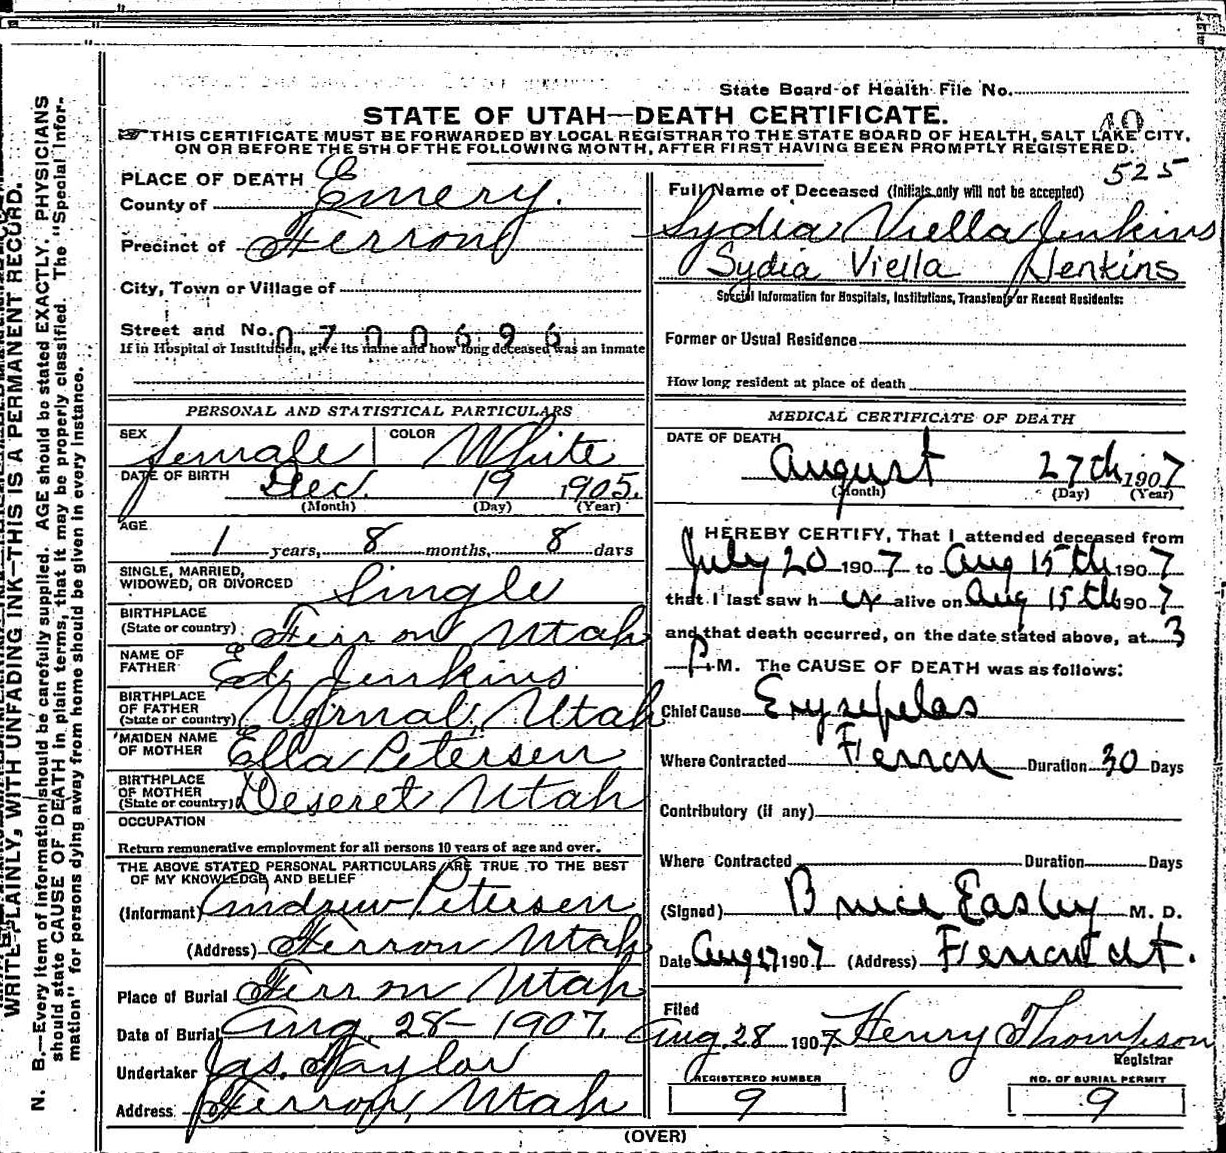 State Board of Health File No.
40
STATE OF UTAH—DEATH CERTIFICATE.
THIS CERTIFICATE MUST BE FORWARDED BY LOCAL REGISTRAR TO THE STATE BOARD OF HEALTH, SALT LAKE CITY,
ON OR BEFORE THE 5TH OF THE FOLLOWING MONTH, AFTER FIRST HAVING BEEN PROMPTLY REGISTERED.
525
PLACE OF DEATH
County of Emery.
Precinct of Ferron
City, Town or Village of
Street and No. 0700696
If in Hospital or Institution, give its name and how long deceased was an Inmate
PERSONAL AND STATISTICAL PARTICULARS
SEX female COLOR White
DATE OF BIRTH Dec. 19 1905.
(Month) (Day) (Year)
AGE 1 years, 8 months, 8 days
SINGLE, MARRIED,
WIDOWED, OR DIVORCED Single
BIRTHPLACE
(State or country) Ferron Utah
NAME OF
FATHER Ed. Jenkins
BIRTHPLACE
OF FATHER
(State or country) Vernal, Utah
MAIDEN NAME
OF MOTHER Ella Petersen
BIRTHPLACE
OF MOTHER
(State or country) Deseret Utah
OCCUPATION
Return remunerative employment for all persons 10 years of age and over.
THE ABOVE STATED PERSONAL PARTICULARS ARE TRUE TO THE BEST
OF MY KNOWLEDGE AND BELIEF
(Informant) Andrew Petersen
(Address) Ferron Utah
Place of Burial Ferron Utah
Date of Burial Aug. 28– 1907.
Undertaker Jas. Taylor
Address Ferron, Utah
Full Name of Deceased (Initials only will not be accepted)
Sydia Viella Jenkins
Sydia Viella Jenkins
Special Information for Hospitals, Institutions, Transients or Recent Residents:
Former or Usual Residence
How long resident at place of death
MEDICAL CERTIFICATE OF DEATH
DATE OF DEATH
August 27th 1907
(Month) (Day) (Year)
I HEREBY CERTIFY, That I attended deceased from
July 20 1907 to Aug 15th 1907
that I last saw h er alive on Aug 15th 1907
and that death occurred, on the date stated above, at 3
P. M. The CAUSE OF DEATH was as follows:
Chief Cause Erysepelas
Where Contracted Ferron Duration 30 Days
Contributory (if any)
Where Contracted Duration Days
(Signed) Bruce Easley M. D.
Date Aug 27 1907 (Address) Ferron Ut.
Filed
Aug. 28 1907 Henry Thompson
Registrar
REGISTERED NUMBER
9
NO. OF BURIAL PERMIT
9
(OVER)
WRITE PLAINLY, WITH UNFADING INK—THIS IS A PERMANENT RECORD.
N. B.—Every item of information should be carefully supplied. AGE should be stated EXACTLY. PHYSICIANS
should state CAUSE OF DEATH in plain terms, that it may be properly classified. The "Special Infor-
mation" for persons dying away from home should be given in every instance.